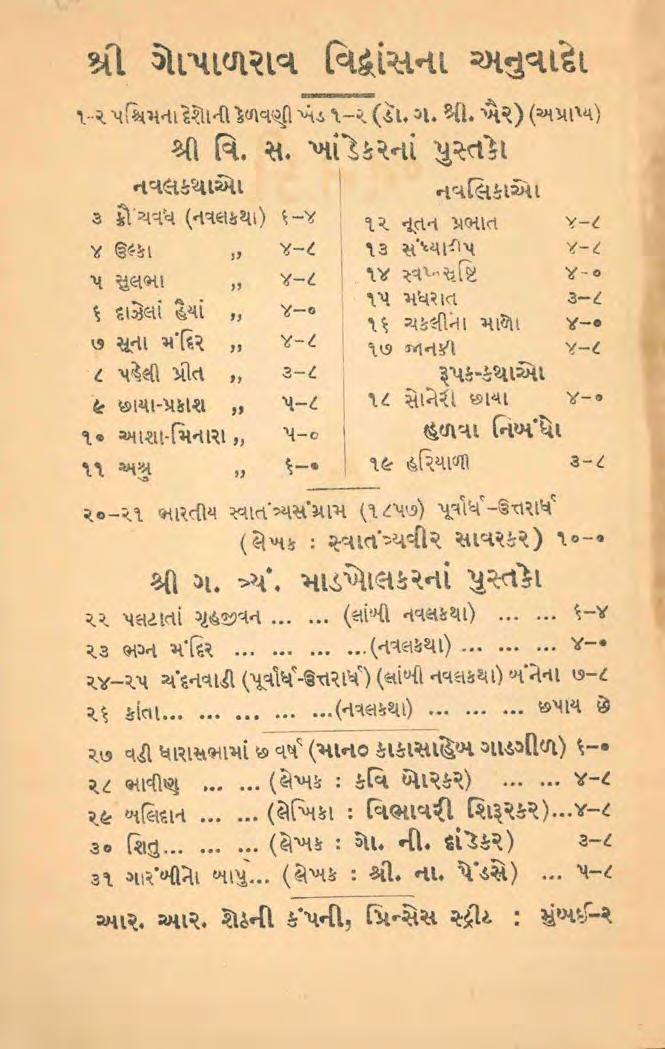 શ્રી ગોપાળરાવ વિદ્વાંસના અનુવાદો
૧-૨ પશ્ચિમના દેશોની કેળવણી ખંડ ૧-૨ (ડૉ. ગ. શ્રી. ખૈર) (અપ્રાપ્ય)
શ્રી વિ. સ. ખાંડેકરનાં પુસ્તકો
નવલકથાઓ
૩ ક્રૌંચવધ (નવલકથા) ૬-૪
૪ ઉલ્કા ,, ૪-૮
૫ સુલભા ,, ૪-૮
૬ દાઝેલાં હૈયાં ,, ૪-૦
૭ સૂના મંદિર ,, ૪-૮
૮ પહેલી પ્રીત ,, ૩-૮
૯ છાયા-પ્રકાશ ,, ૫-૮
૧૦ આશા-મિનારા ,, ૫-૦
૧૧ અશ્રુ ,, ૬-૦
નવલિકાઓ
૧૨ નૂતન પ્રભાત ૪-૮
૧૩ સંધ્યાદીપ ૪-૮
૧૪ સ્વપ્નસૃષ્ટિ ૪-૦
૧૫ મધરાત ૩-૮
૧૬ ચકલીના માળો ૪-૦
૧૭ જાનકી ૪-૮
રૂપક-કથાઓ
૧૮ સોનેરી છાયા ૪-૦
હળવા નિબંધો
૧૯ હરિયાળી ૩-૮
૨૦-૨૧ ભારતીય સ્વાતંત્ર્યસંગ્રામ (૧૮૫૭) પૂર્વાર્ધ-ઉત્તરાર્ધ
(લેખક : સ્વાતંત્ર્યવીર સાવરકર) ૧૦-૦
શ્રી ગ. ત્ર્યં. માડખોલકરનાં પુસ્તકો
૨૨ પલટાતાં ગૃહજીવન ... ... (લાંબી નવલકથા) ... ... ૬-૪
૨૩ ભગ્ન મંદિર ... ... ... ...(નવલકથા) ... ... ... ૪-૦
૨૪-૨૫ ચંદનવાડી (પૂર્વાર્ધ-ઉત્તરાર્ધ) (લાંબી નવલકથા) બંનેના ૭-૮
૨૬ કાંતા... ... ... ... ...(નવલકથા) ... ... ... છપાય છે
૨૭ વડી ધારાસભામાં છ વર્ષ (માન૦ કાકાસાહેબ ગાડગીળ) ૬-૦
૨૮ ભાવીણ ... ... (લેખક : કવિ બોરકર) ... ... ૪-૮
૨૯ બલિદાન ... ... (લેખિકા : વિભાવરી શિરૂરકર)...૪-૮
૩૦ શિતુ... ... ... (લેખક : ગો. ની. દાંડેકર) ૩-૮
૩૧ ગારંબીનો બાપુ... (લેખક : શ્રી. ના. પેંડસે) ... ૫-૮
આર. આર. શેઠની કંપની, પ્રિન્સેસ સ્ટ્રીટ : મુંબઈ-૨